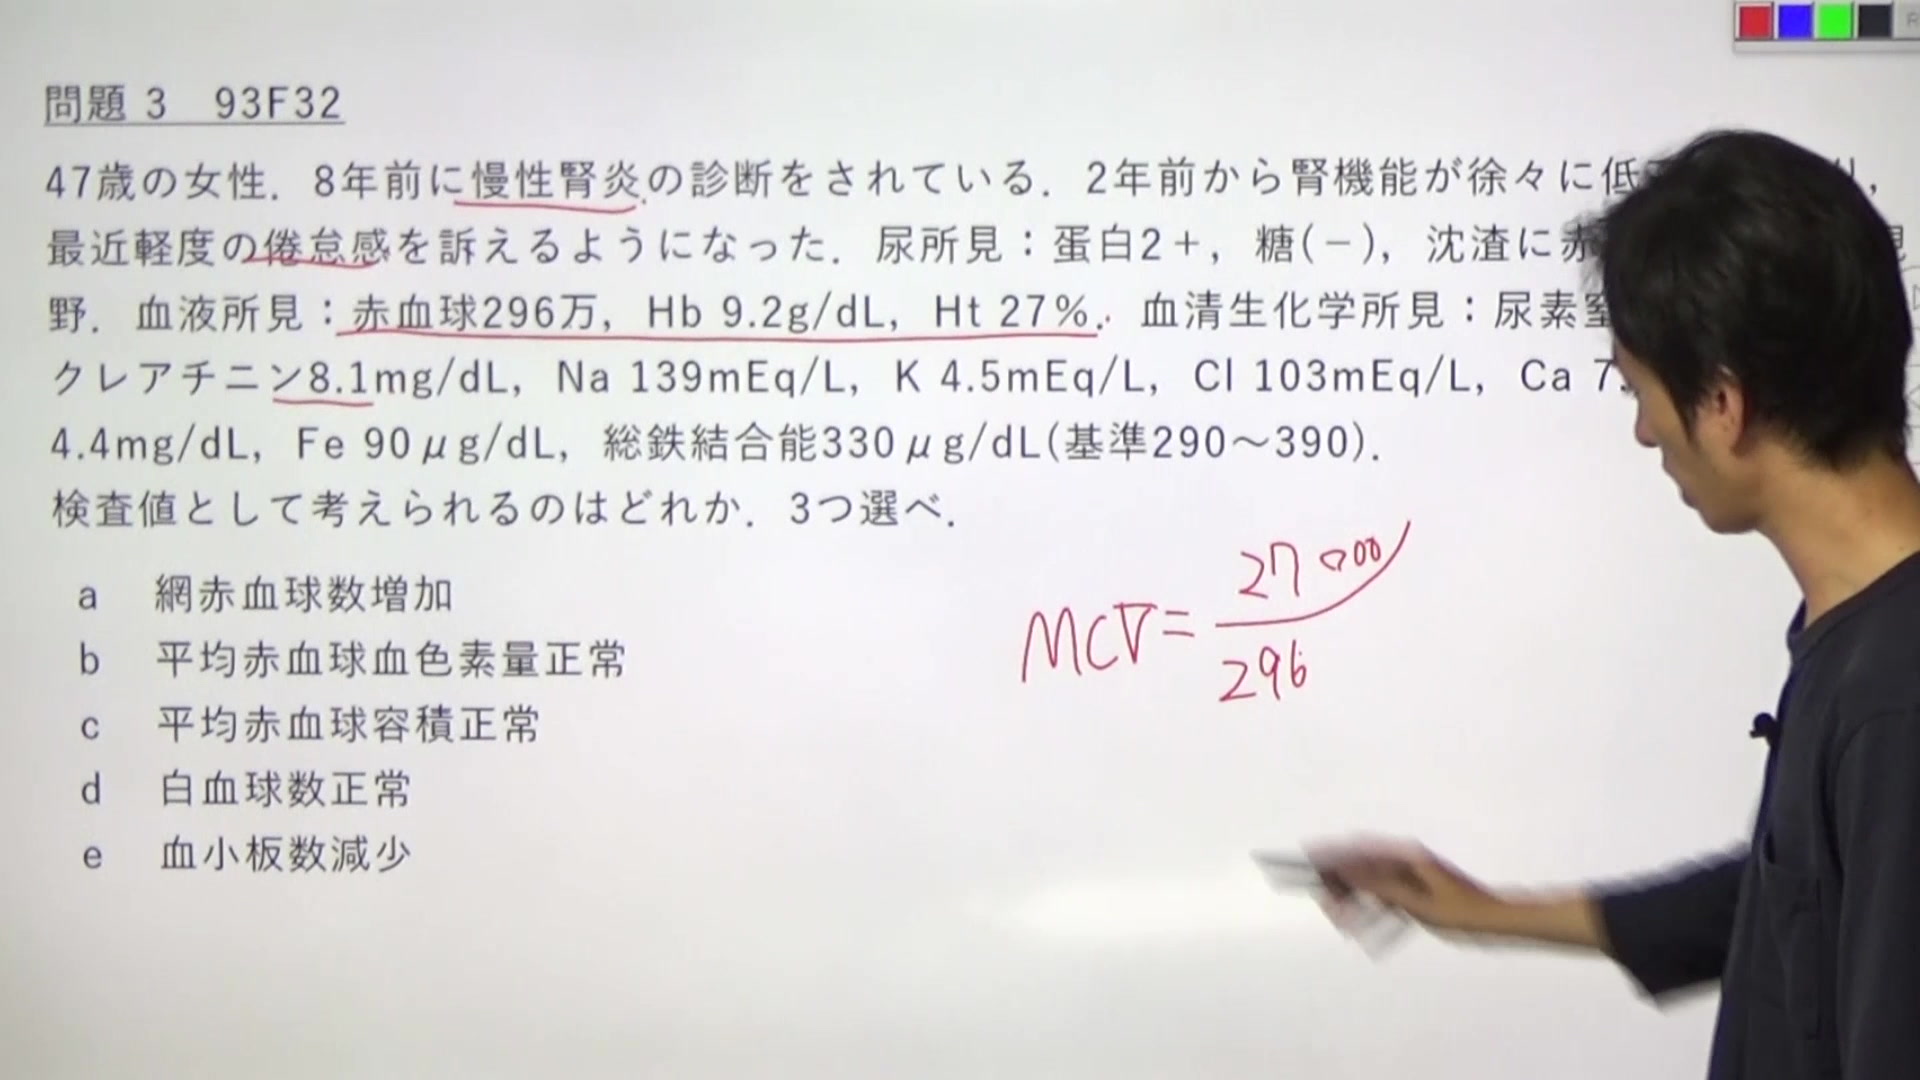 問題 3　93F32
47歳の女性．8年前に慢性腎炎の診断をされている．2年前から腎機能が徐々に低
最近軽度の倦怠感を訴えるようになった．尿所見：蛋白2＋，糖(－)，沈渣に赤
野．血液所見：赤血球296万，Hb 9.2g/dL，Ht 27%．血清生化学所見：尿素窒
クレアチニン8.1mg/dL，Na 139mEq/L，K 4.5mEq/L，Cl 103mEq/L，Ca 7
4.4mg/dL，Fe 90μg/dL，総鉄結合能330μg/dL(基準290～390)．
検査値として考えられるのはどれか．3つ選べ．
a　網赤血球数増加
b　平均赤血球血色素量正常
c　平均赤血球容積正常
d　白血球数正常
e　血小板数減少
27000
MCV=
296